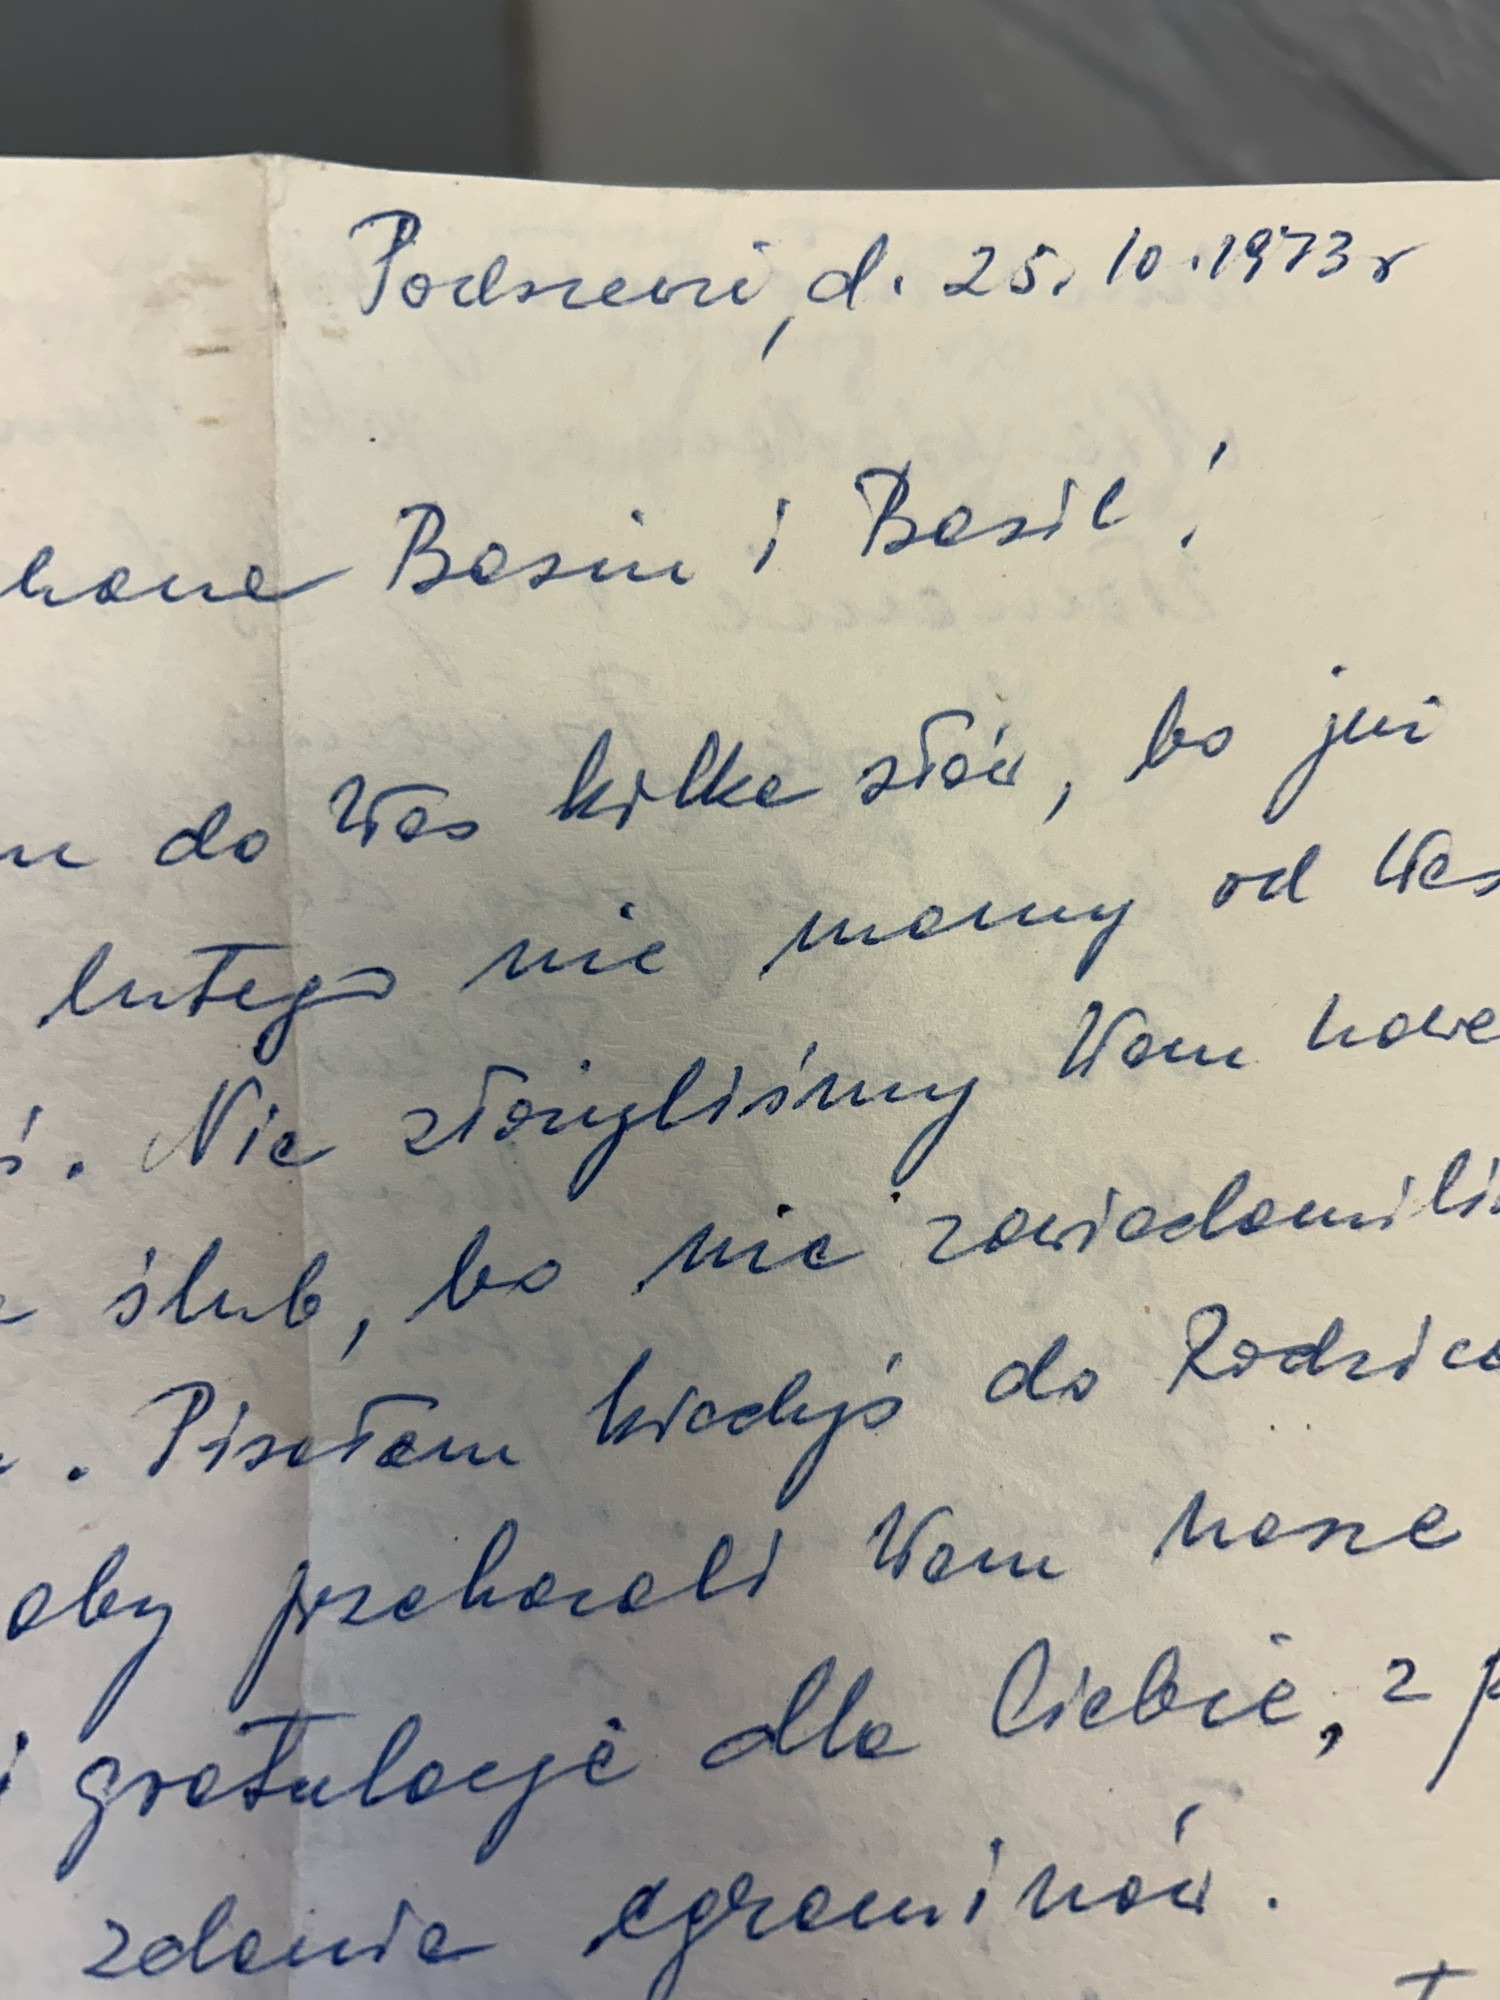 d. 25.10.1973 r
hane Basiu i
do Was kilka słów, bo już
lutego nie mamy od Was
ś. Nie złożyliśmy Wam nawe
ślub, bo nie zawiadomiliś
. Pisałam kiedyś do Rodzicó
aby przekazali Wam nasze
i gratulacje dla Ciebie, z p
zdania egzaminów.